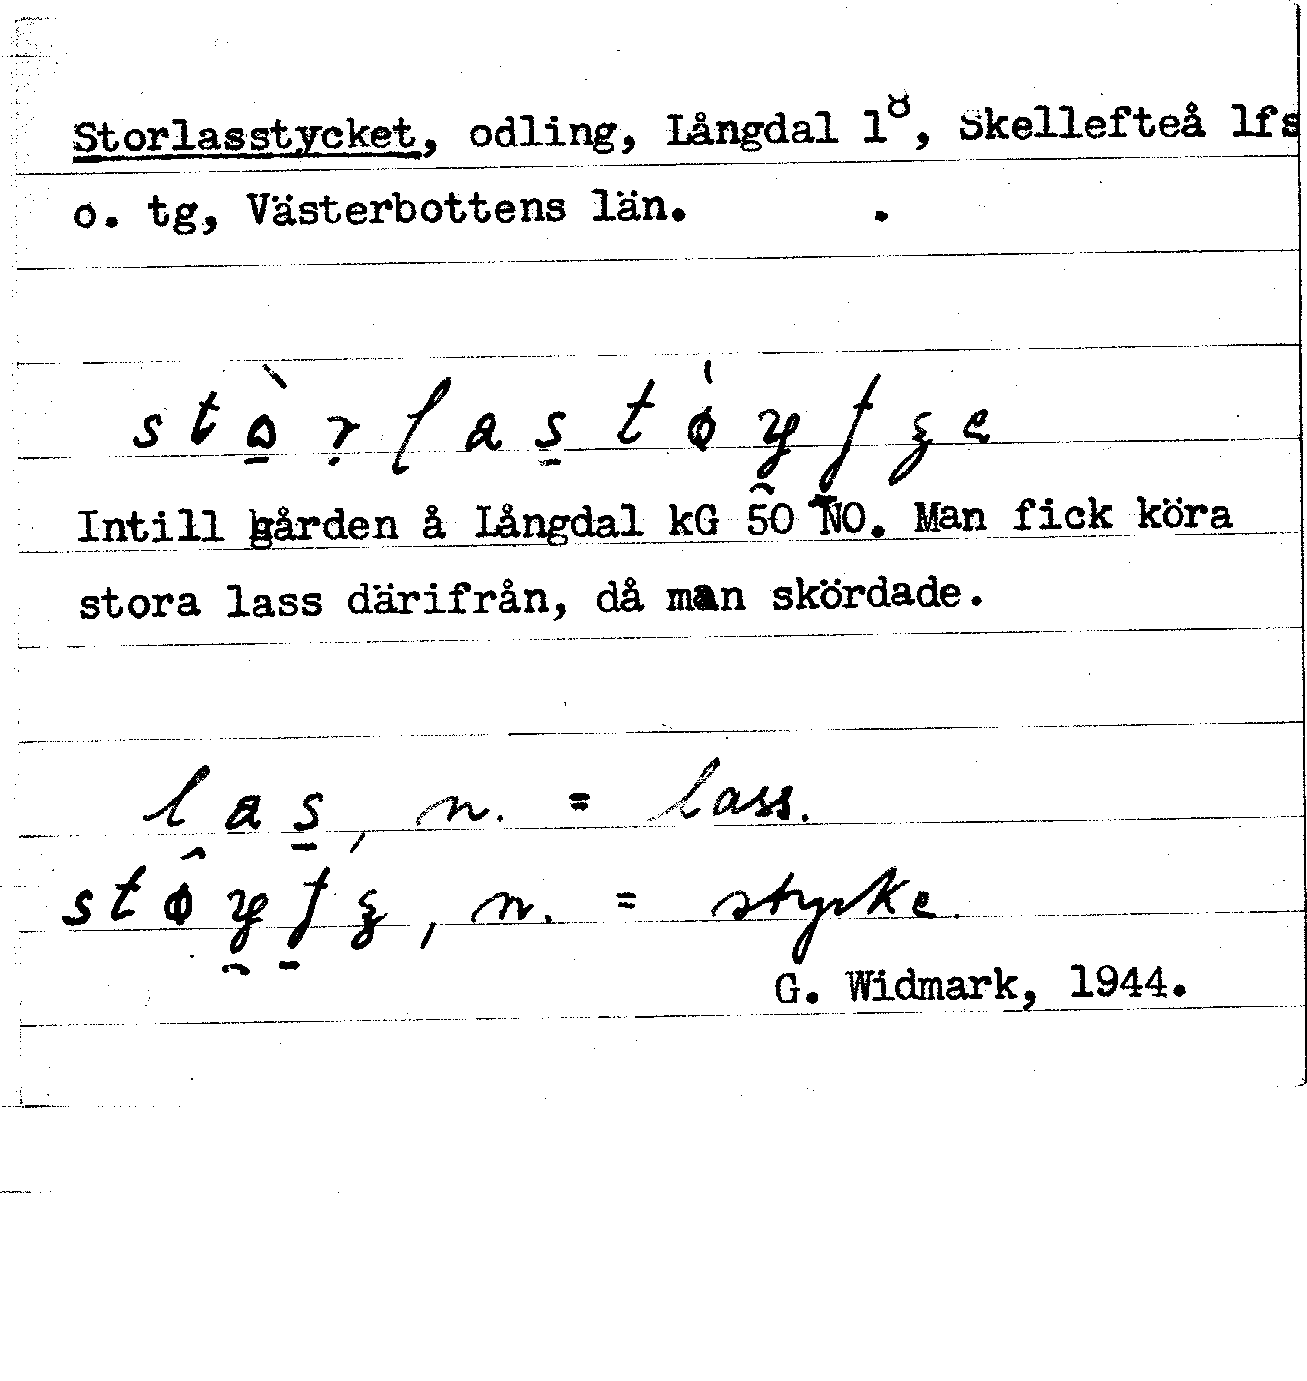 Storlasstycket, odling, Långdal 1⁸, Skellefteå lfs
o. tg, Västerbottens län.
Intill gården å Långdal kG 50 NO. Man fick köra
stora lass därifrån, då man skördade.
las, n. = lass.
n. = stycke.
G. Widmark, 1944.